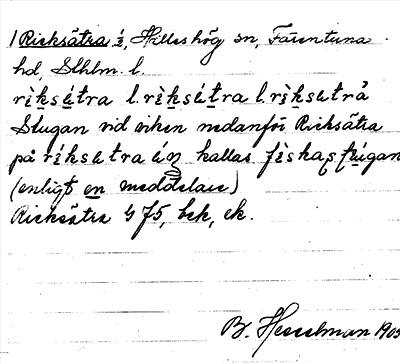 1 Ricksätra ⅟₂, Hilleshög sn, Färentuna
hd, Sthlm. l.
rìksétra l. rìksétra l. rìksetrå
Stugan vid viken nedanför Ricksätra
på ríksetra kallas fìskastúgan
(enligt en meddelare)
Ricksätra G 75, bek, ek.
B. Hesselman 1905